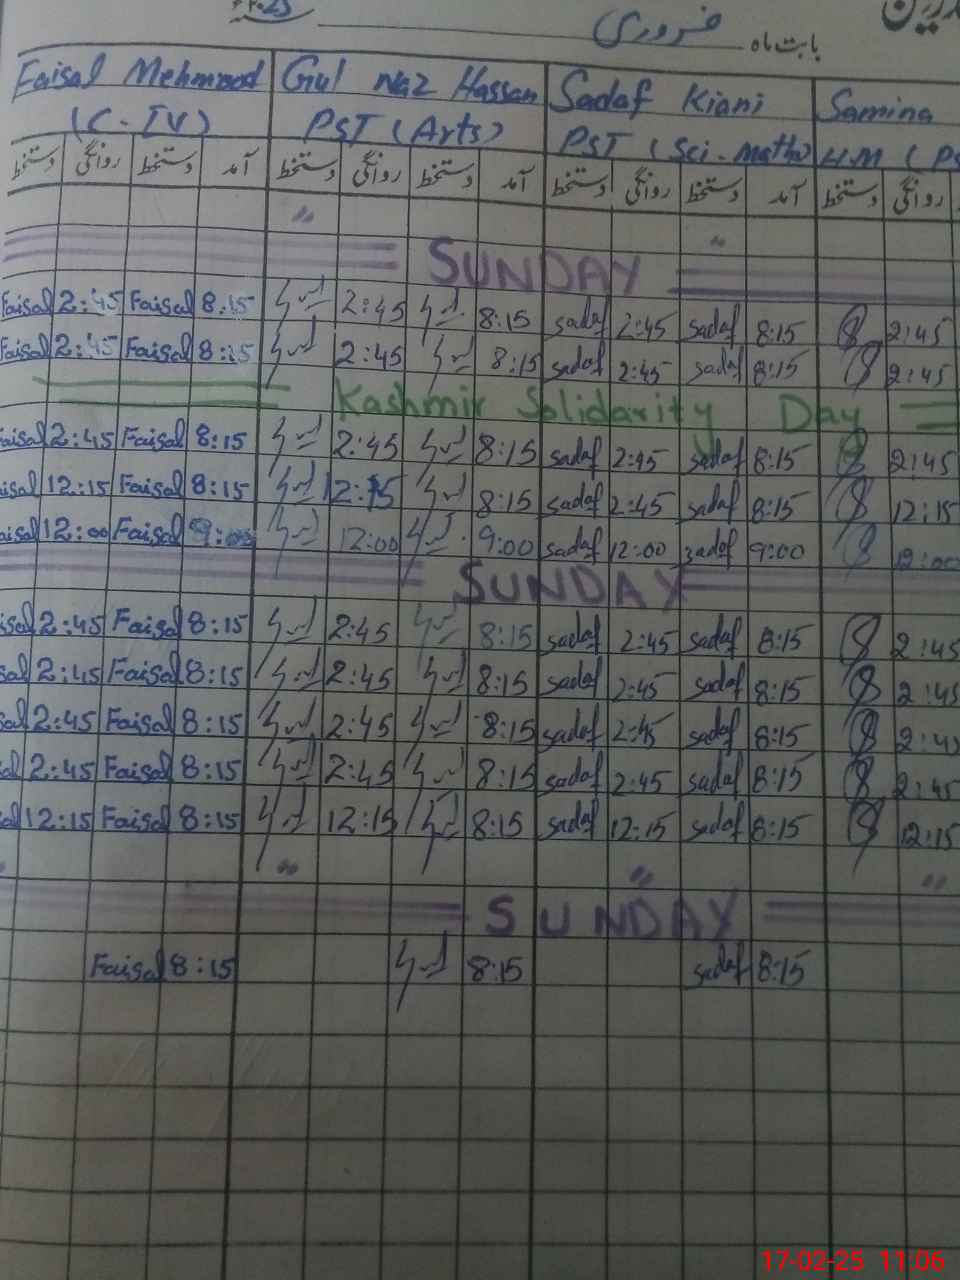 بابت ماہ فروری
Faisal Mehmood Gul Naz Hassan Sadaf Kiani Samina
(C-IV) PST (Arts) PST (Sci-Maths) H.M (PS
دستخط روانگی دستخط آمد دستخط روانگی دستخط آمد دستخط روانگی دستخط آمد دستخط روانگی
SUNDAY
Faisal 2:45 Faisal 8:15 2:45 8:15 sadaf 2:45 sadaf 8:15 2:45
Faisal 2:45 Faisal 8:15 2:45 8:15 sadaf 2:45 sadaf 8:15 2:45
Kashmir Solidarity Day
aisal 2:45 Faisal 8:15 2:45 8:15 sadaf 2:45 sadaf 8:15 2:45
aisal 12:15 Faisal 8:15 12:15 8:15 sadaf 2:45 sadaf 8:15 12:15
aisal 12:00 Faisal 9:00 12:00 9:00 sadaf 12:00 sadaf 9:00 12:00
SUNDAY
isal 2:45 Faisal 8:15 2:45 8:15 sadaf 2:45 sadaf 8:15 2:45
sal 2:45 Faisal 8:15 2:45 8:15 sadaf 2:45 sadaf 8:15 2:45
sal 2:45 Faisal 8:15 2:45 8:15 sadaf 2:45 sadaf 8:15 2:45
al 2:45 Faisal 8:15 2:45 8:15 sadaf 2:45 sadaf 8:15 2:45
al 12:15 Faisal 8:15 12:15 8:15 sadaf 12:15 sadaf 8:15 12:15
SUNDAY
Faisal 8:15 8:15 sadaf 8:15
17-02-25 11:06